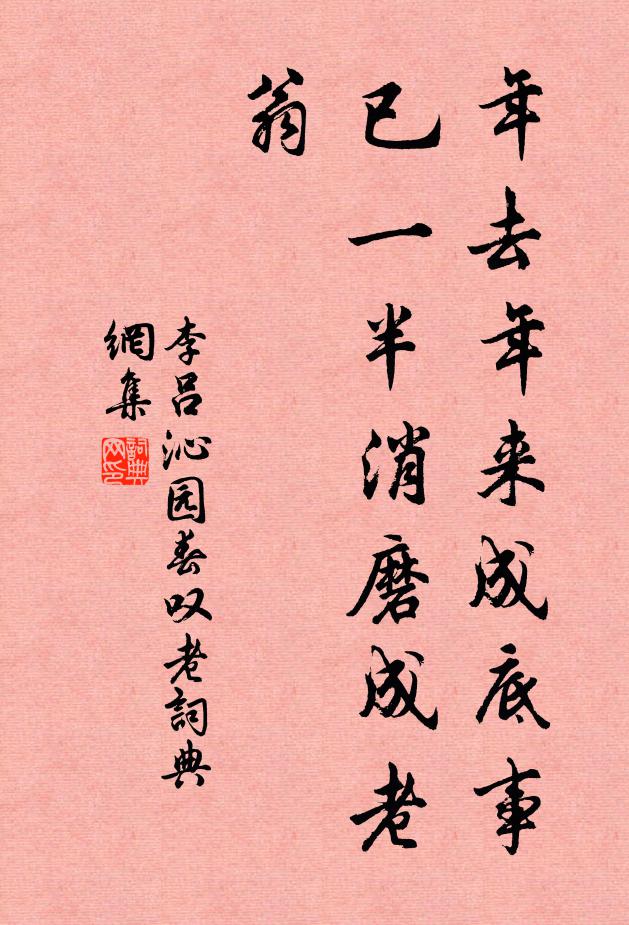 年去年来成底事
已一半消磨成老
翁
李吕沁园春叹老詞典
網集
詞典
网印